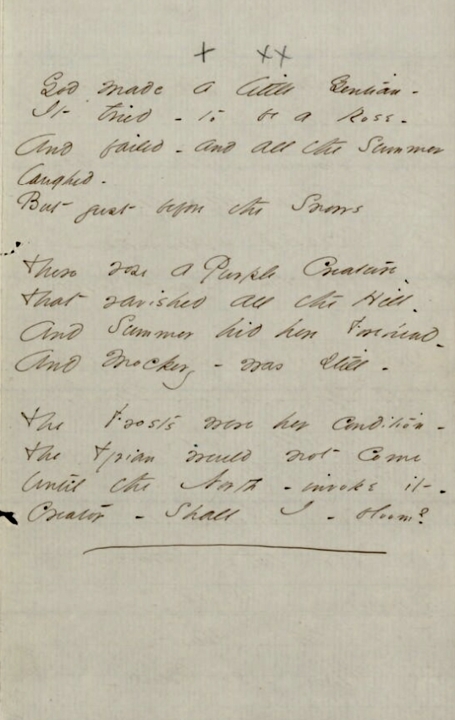 + ++
God made a little Gentian -
It tried - to be a Rose -
And failed - and all the Summer
laughed -
But just before the Snows
There rose a Purple Creature
That ravished all the Hill -
And Summer hid her Forehead -
And Mockery - was still -
The Frosts were her condition -
The Tyrian would not come
Until the North - invoke it -
Creator - Shall I - bloom?